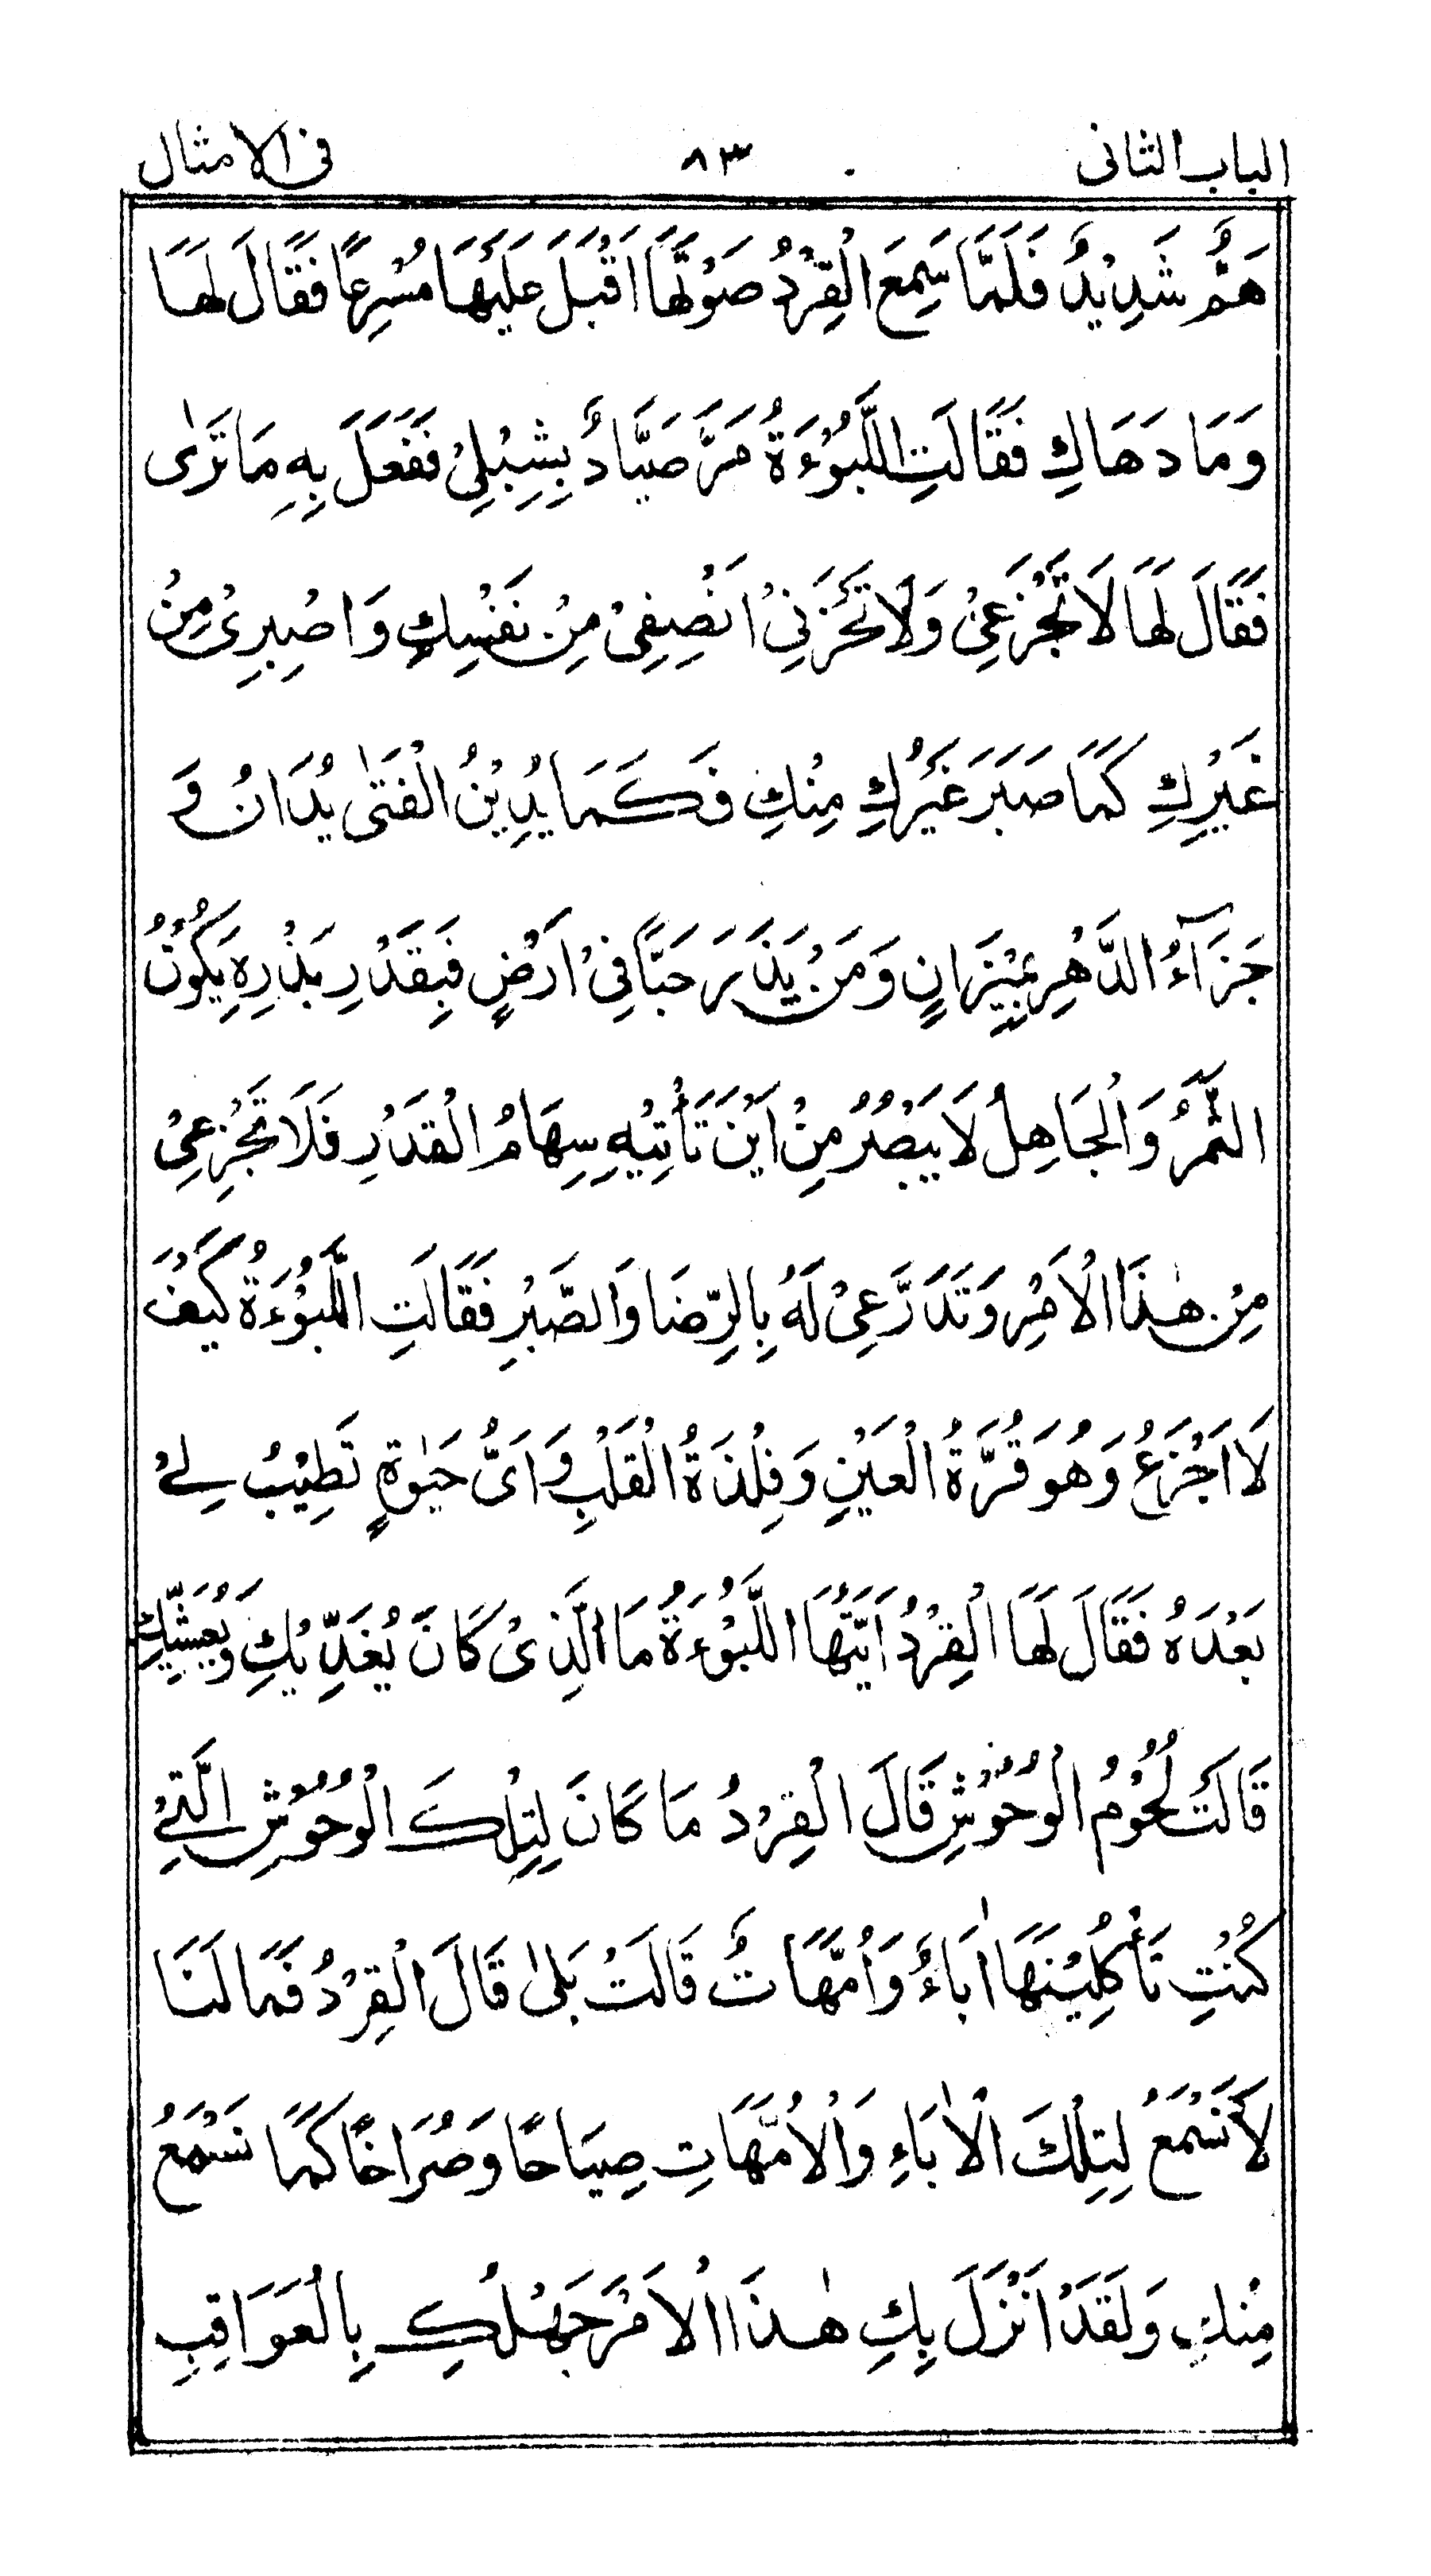 الباب الثانى ٨٣ فى الامثال
هَمٌّ شَدِيْدٌ فَلَمَّا سَمِعَ الْقِرْدُ صَوْتَهَا اَقْبَلَ عَلَيْهَا مُسْرِعًا فَقَالَ لَهَا
وَمَا دَهَاكِ فَقَالَتِ اللَّبُوْءَةُ مَرَّ صَيَّادٌ بِشِبْلِىْ فَفَعَلَ بِهٖ مَا تَرٰى
فَقَالَ لَهَا لَا تَجْزَعِىْ وَلَا تَحْزَنِىْ اَنْصِفِىْ مِنْ نَفْسِكِ وَاصْبِرِىْ مِنْ
غَيْرِكِ كَمَا صَبَرَ غَيْرُكِ مِنْكِ فَكَمَا يَدِيْنُ الْفَتٰى يُدَانُ وَ
جَزَآءُ الدَّهْرِ بِمِيْزَانٍ وَمَنْ يَذَرَ حَبًّا فِىْ اَرْضٍ فَبِقَدْرِ بَذْرِهٖ يَكُوْنُ
الثَّمَرُ وَالْجَاهِلُ لَا يَبْصُرُ مِنْ اَيْنَ تَأْتِيْهِ سِهَامُ الْقَدَرِ فَلَا تَجْزِعِىْ
مِنْ هٰذَا الْاَمْرِ وَتَدَرَّعِىْ لَهُ بِالرِّضَا وَالصَّبْرِ فَقَالَتِ اللَّبُوْءَةُ كَيْفَ
لَا اَجْزَعُ وَهُوَ قُرَّةُ الْعَيْنِ وَفِلْذَةُ الْقَلْبِ وَاَىُّ حَيٰوةٍ تَطِيْبُ لِىْ
بَعْدَهُ فَقَالَ لَهَا الْقِرْدُ اَيَّتُهَا اللَّبُوْءَةُ مَا الَّذِىْ كَانَ يُغَدِّيْكِ وَيُعَشِّيْكِ
قَالَتْ لُحُوْمُ الْوُحُوْشِ قَالَ الْقِرْدُ مَا كَانَ لِتِلْكَ الْوُحُوْشِ الَّتِىْ
كُنْتِ تَأْكُلِيْنَهَا اٰبَاءٌ وَاُمَّهَاتٌ قَالَتْ بَلٰى قَالَ الْقِرْدُ فَمَا لَنَا
لَا نَسْمَعُ لِتِلْكَ الْاٰبَاءِ وَالْاُمَّهَاتِ صِيَاحًا وَصُرَاخًا كَمَا نَسْمَعُ
مِنْكِ وَلَقَدْ اَنْزَلَ بِكِ هٰذَا الْاَمْرَ جَهْلُكِ بِالْعَوَاقِبِ